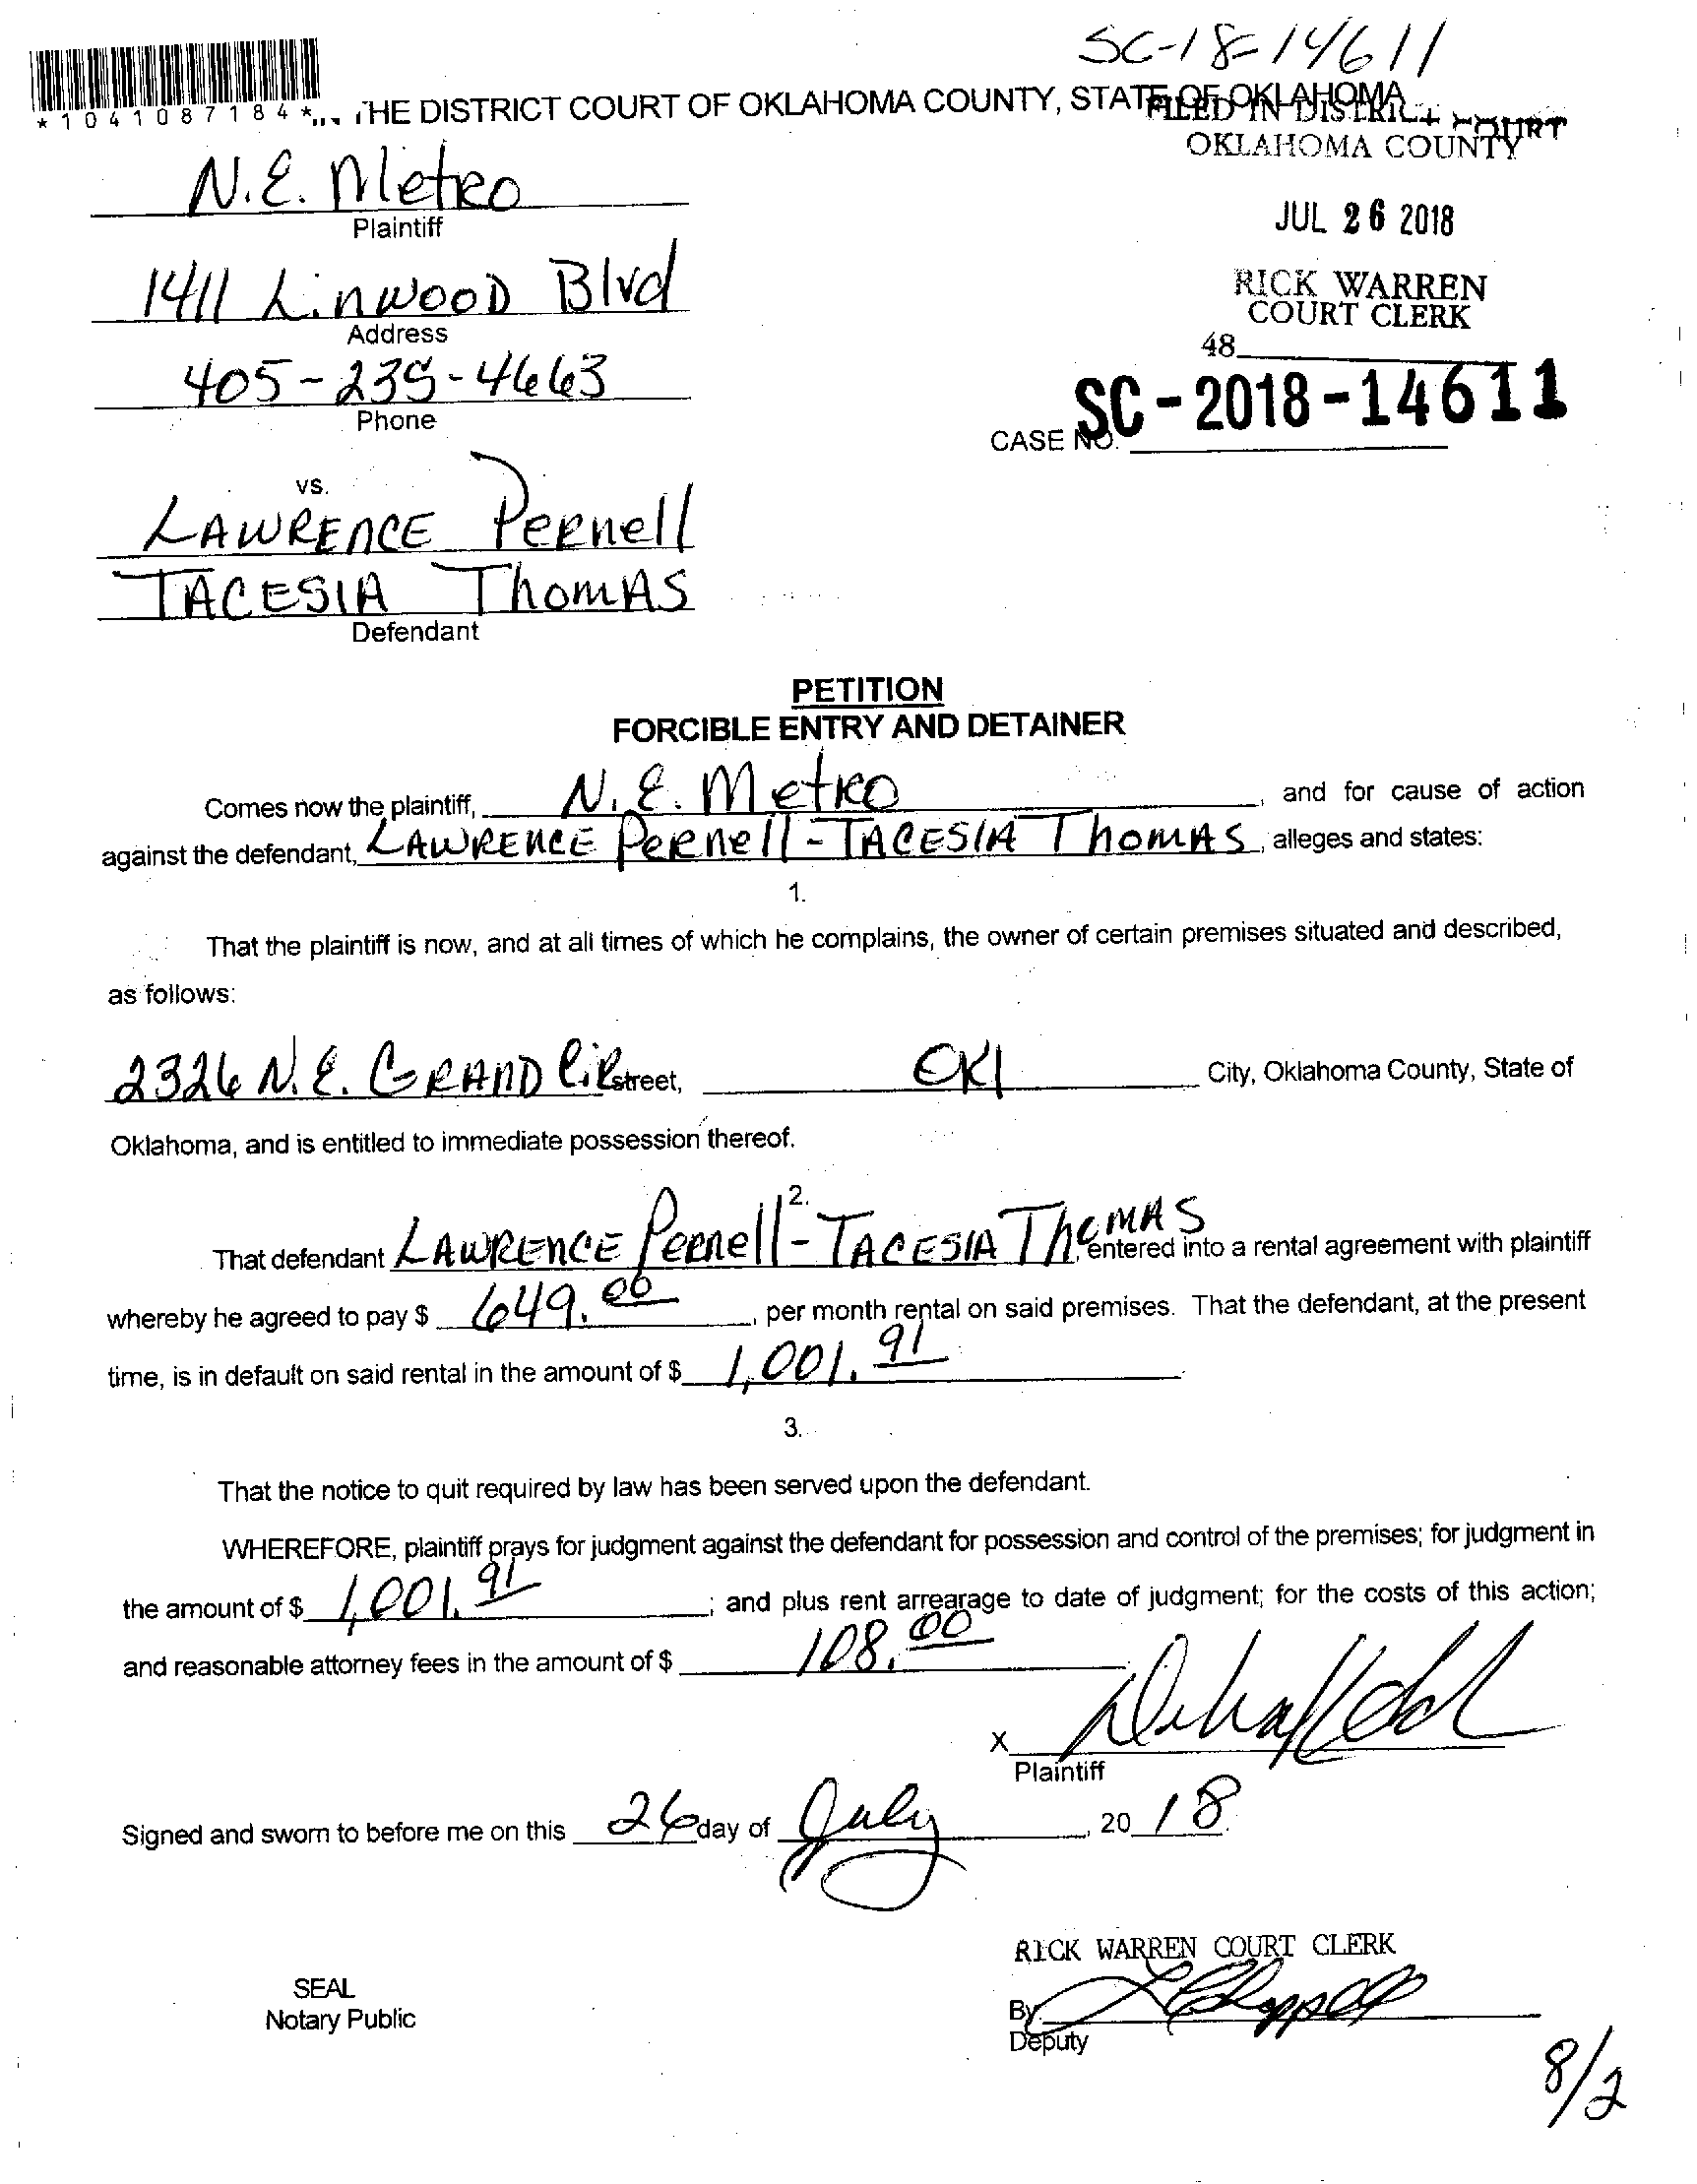 SC-18-14611
*1041087184* THE DISTRICT COURT OF OKLAHOMA COUNTY, STATE OF OKLAHOMA
FILED IN DISTRICT COURT
OKLAHOMA COUNTY
N.E. Metro
Plaintiff
JUL 26 2018
1411 Linwood Blvd
Address
RICK WARREN
COURT CLERK
48
405-235-4663
Phone
CASE NO. SC-2018-14611
vs.
LAWRENCE Pernell
TACESIA Thomas
Defendant
PETITION
FORCIBLE ENTRY AND DETAINER
Comes now the plaintiff, N.E. Metro, and for cause of action
against the defendant, LAWRENCE Pernell - TACESIA Thomas, alleges and states:
1.
That the plaintiff is now, and at all times of which he complains, the owner of certain premises situated and described,
as follows:
2326 N.E. GRAND Cir street, Okl City, Oklahoma County, State of
Oklahoma, and is entitled to immediate possession thereof.
2.
That defendant LAWRENCE Pernell - TACESIA Thomas, entered into a rental agreement with plaintiff
whereby he agreed to pay $ 649.00, per month rental on said premises. That the defendant, at the present
time, is in default on said rental in the amount of $ 1,001.91
3.
That the notice to quit required by law has been served upon the defendant.
WHEREFORE, plaintiff prays for judgment against the defendant for possession and control of the premises; for judgment in
the amount of $ 1,001.91; and plus rent arrearage to date of judgment; for the costs of this action;
and reasonable attorney fees in the amount of $ 108.00
X
Plaintiff
Signed and sworn to before me on this 26 day of July, 20 18.
RICK WARREN COURT CLERK
SEAL
Notary Public
By
Deputy
8/2